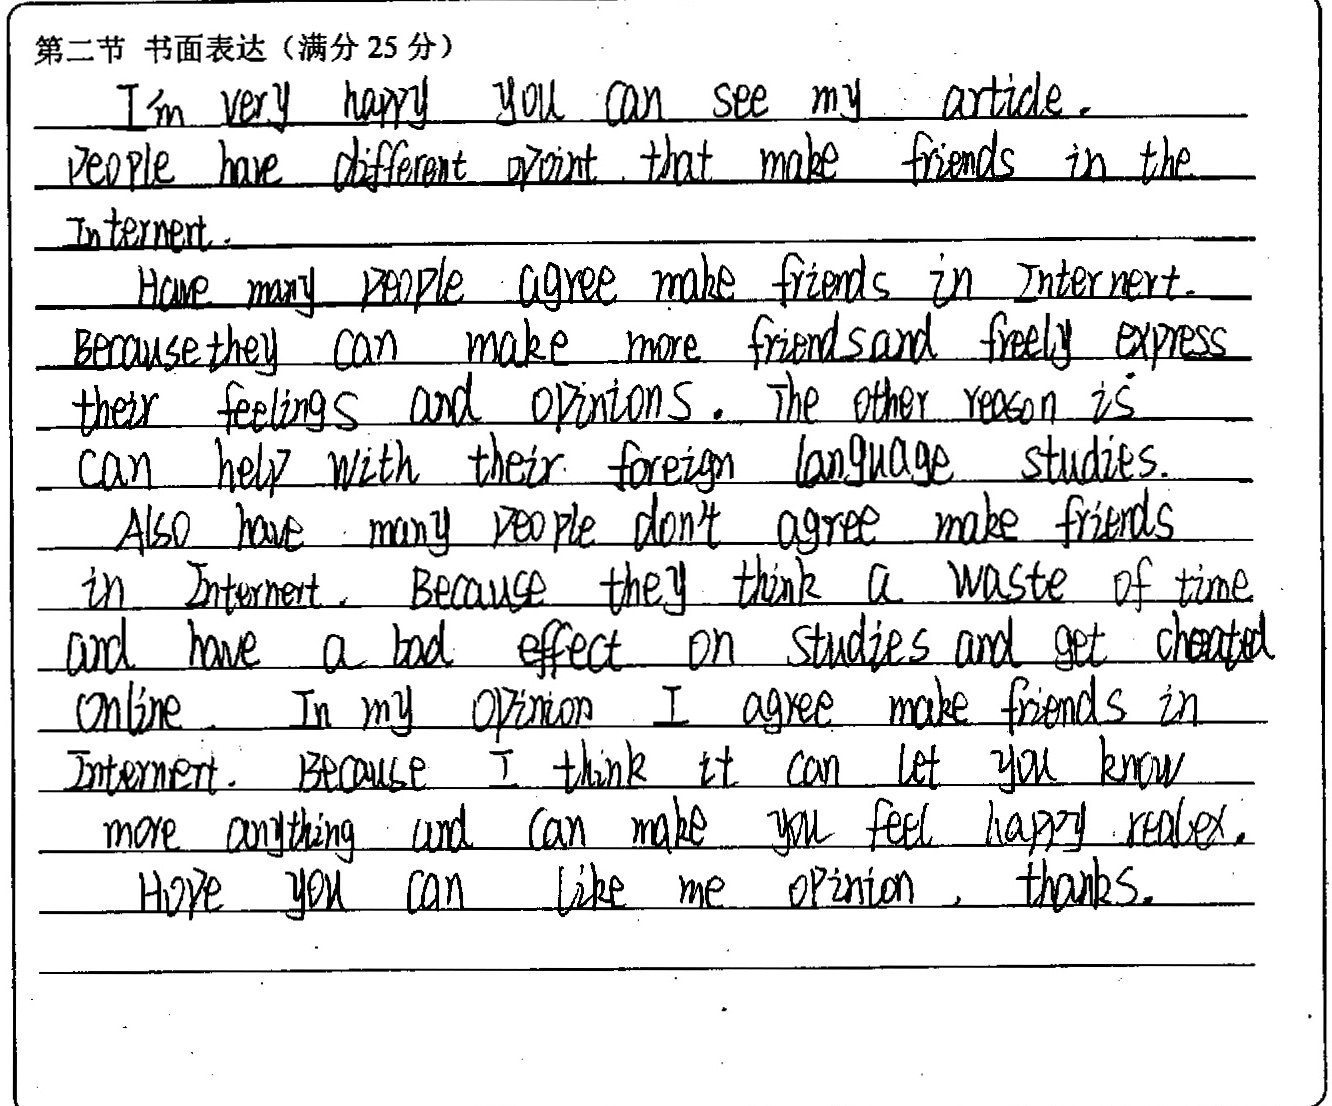 第二节 书面表达（满分 25 分）
I'm very happy you can see my article.
People have different opoint that make friends in the
Internert.
Have many people agree make friends in Internert.
Because they can make more friends and freely express
their feelings and opinions. The other reason is
can help with their foreign language studies.
Also have many people don't agree make friends
in Internert. Because they think a waste of time
and have a bad effect on studies and get cheated
online. In my opinion I agree make friends in
Internert. Because I think it can let you know
more anything and can make you feel happy realex.
Hope you can like me opinion, thanks.